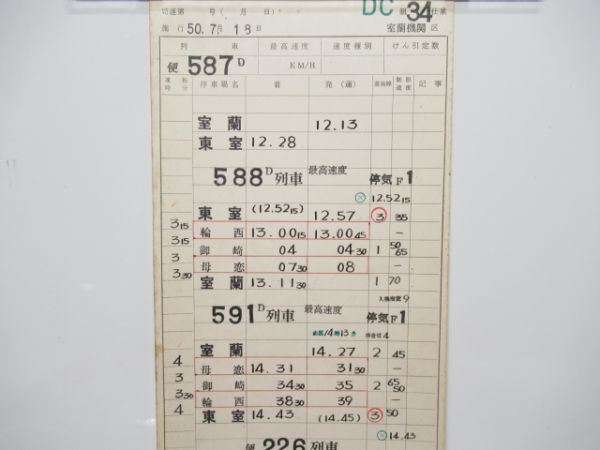 司達第 号(月 日) DC 組 34 仕業
施行 50.7月18日 室蘭機関区
列 車 最高速度 速度種別 けん引定数
便 587D KM/H
運転時分 停車場名 着 発(通) 着発線 制限速度 記事
室蘭 12.13
東室 12.28
588D列車 最高速度 停気F1
12.52 15
東室 (12.52 15) 12.57 3 35
3 15 輪西 13.00 15 13.00 45 —
3 15 御崎 04 04 30 1 50 65
3 母恋 07 30 08 —
3 30 室蘭 13.11 30 1 70
9
591D列車 最高速度 停気F1
14時13分 4
室蘭 14.27 2 45
4 母恋 14.31 31 30 —
3 御崎 34 30 35 2 65 50
3 30 輪西 38 30 39 —
4 東室 14.43 (14.45) 3 50
14.43
便 226列車